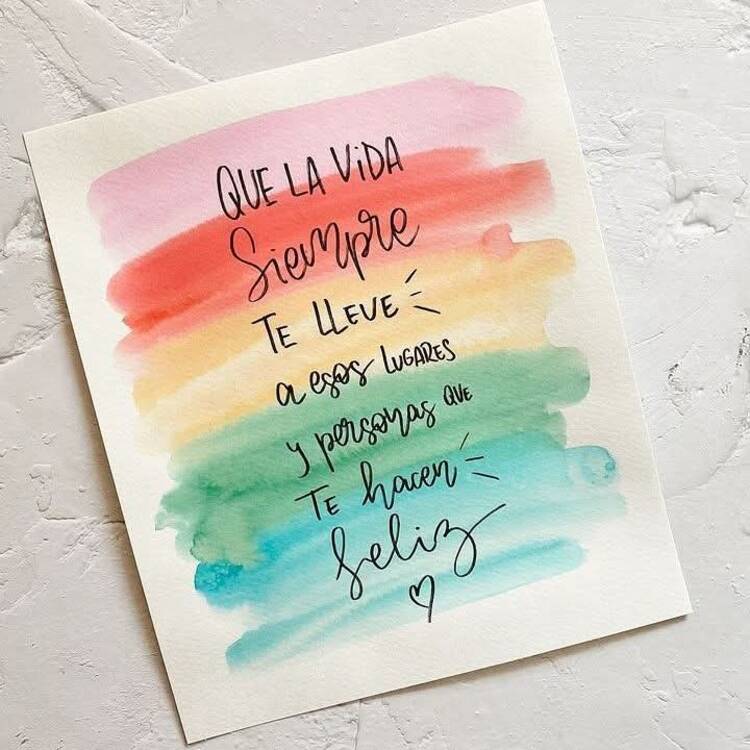 QUE LA ViDA
Siempre
TE LLEVE
a esos LUGARES
y personas QUE
TE hacen
feliz